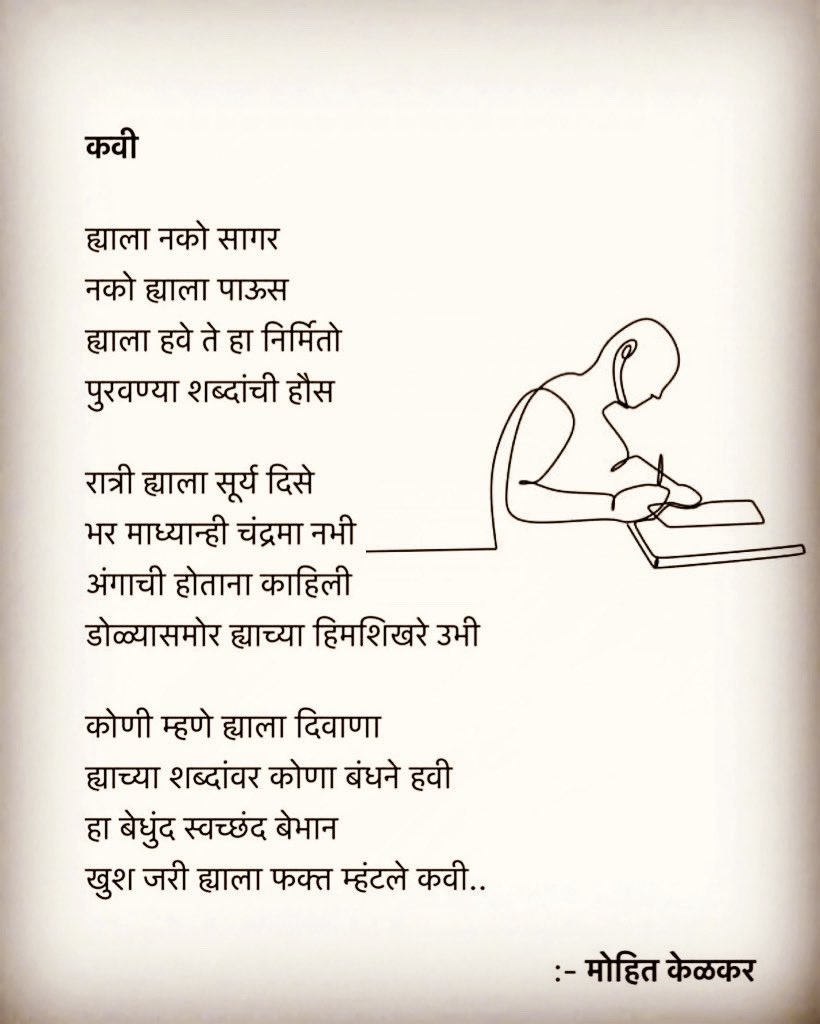 कवी
ह्याला नको सागर
नको ह्याला पाऊस
ह्याला हवे ते हा निर्मितो
पुरवण्या शब्दांची हौस
रात्री ह्याला सूर्य दिसे
भर माध्यान्ही चंद्रमा नभी
अंगाची होताना काहिली
डोळ्यासमोर ह्याच्या हिमशिखरे उभी
कोणी म्हणे ह्याला दिवाणा
ह्याच्या शब्दांवर कोणा बंधने हवी
हा बेधुंद स्वच्छंद बेभान
खुश जरी ह्याला फक्त म्हंटले कवी..
:- मोहित केळकर